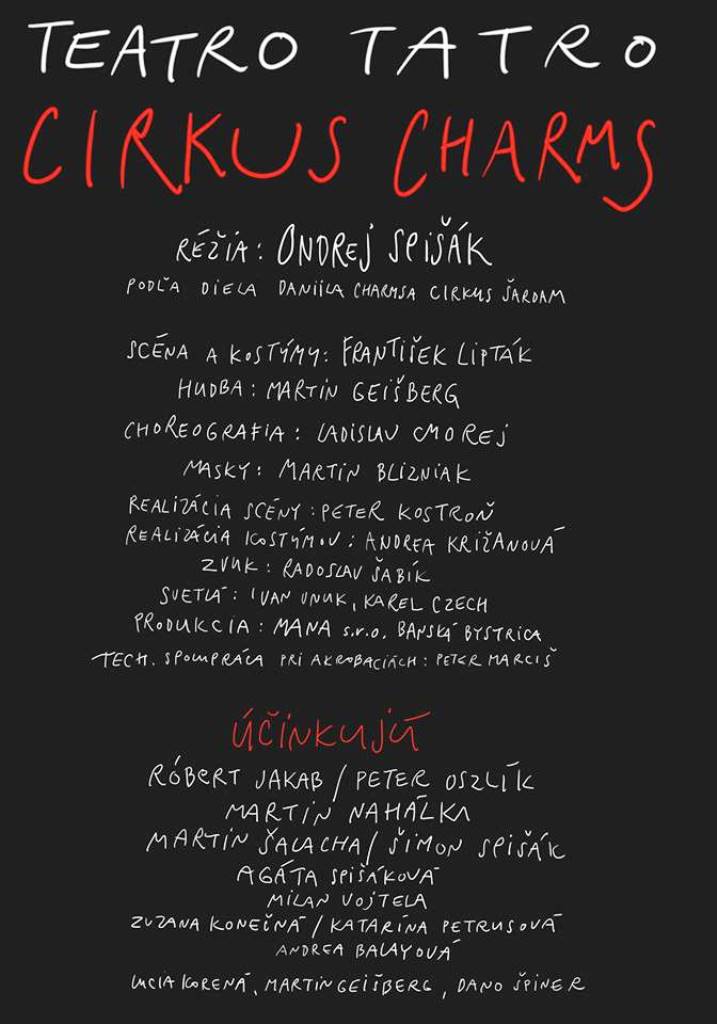 TEATRO TATRO
CIRKUS CHARMS
RÉŽIA: ONDREJ SPIŠÁK
PODĽA DIELA DANIILA CHARMSA CIRKUS ŠARDAM
SCÉNA A KOSTÝMY: FRANTIŠEK LIPTÁK
HUDBA: MARTIN GEIŠBERG
CHOREOGRAFIA: LADISLAV CMOREJ
MASKY: MARTIN BLIZNIAK
REALIZÁCIA SCÉNY: PETER KOSTROŇ
REALIZÁCIA KOSTÝMOV: ANDREA KRIŽANOVÁ
ZVUK: RADOSLAV ŠABÍK
SVETLÁ: IVAN VNUK, KAREL CZECH
PRODUKCIA: MANA s.r.o. BANSKÁ BYSTRICA
TECH. SPOLUPRÁCA PRI AKROBACIÁCH: PETER MARCIŠ
ÚČINKUJÚ
RÓBERT JAKAB / PETER OSZLÍK
MARTIN NAHÁLKA
MARTIN ŠALACHA / ŠIMON SPIŠÁK
AGÁTA SPIŠÁKOVÁ
MILAN VOJTELA
ZUZANA KONEČNÁ / KATARÍNA PETRUSOVÁ
ANDREA BALAYOVÁ
LUCIA KORENÁ, MARTIN GEIŠBERG, DANO ŠPINER